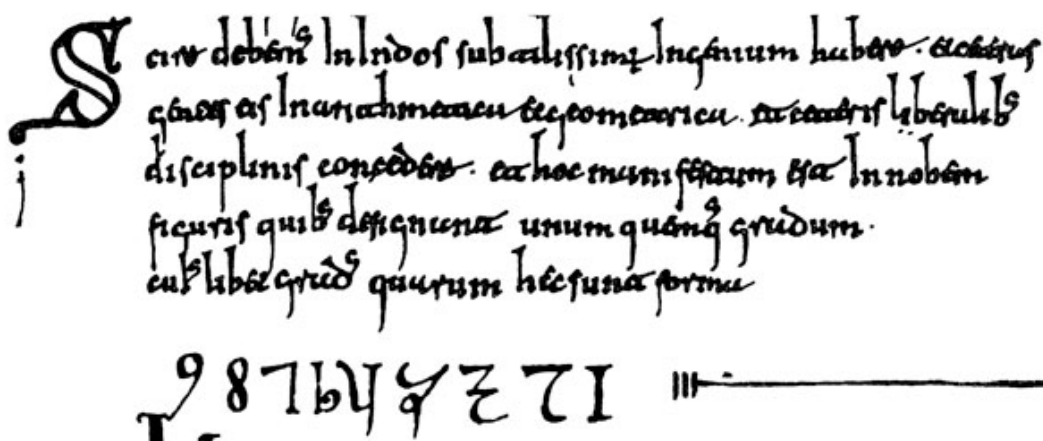 Scire debems In Indos subtilissimu Ingenium habere. et ceteras
gentes eis In arithmetica et geometrica. et ceteris liberalibs
disciplinis concedere. et hoc manifestum est In nobem
figuris quibs designant unum quemqs gradum.
cuislibet grads quarum hec sunt forma
9 8 7 6 5 4 3 2 1